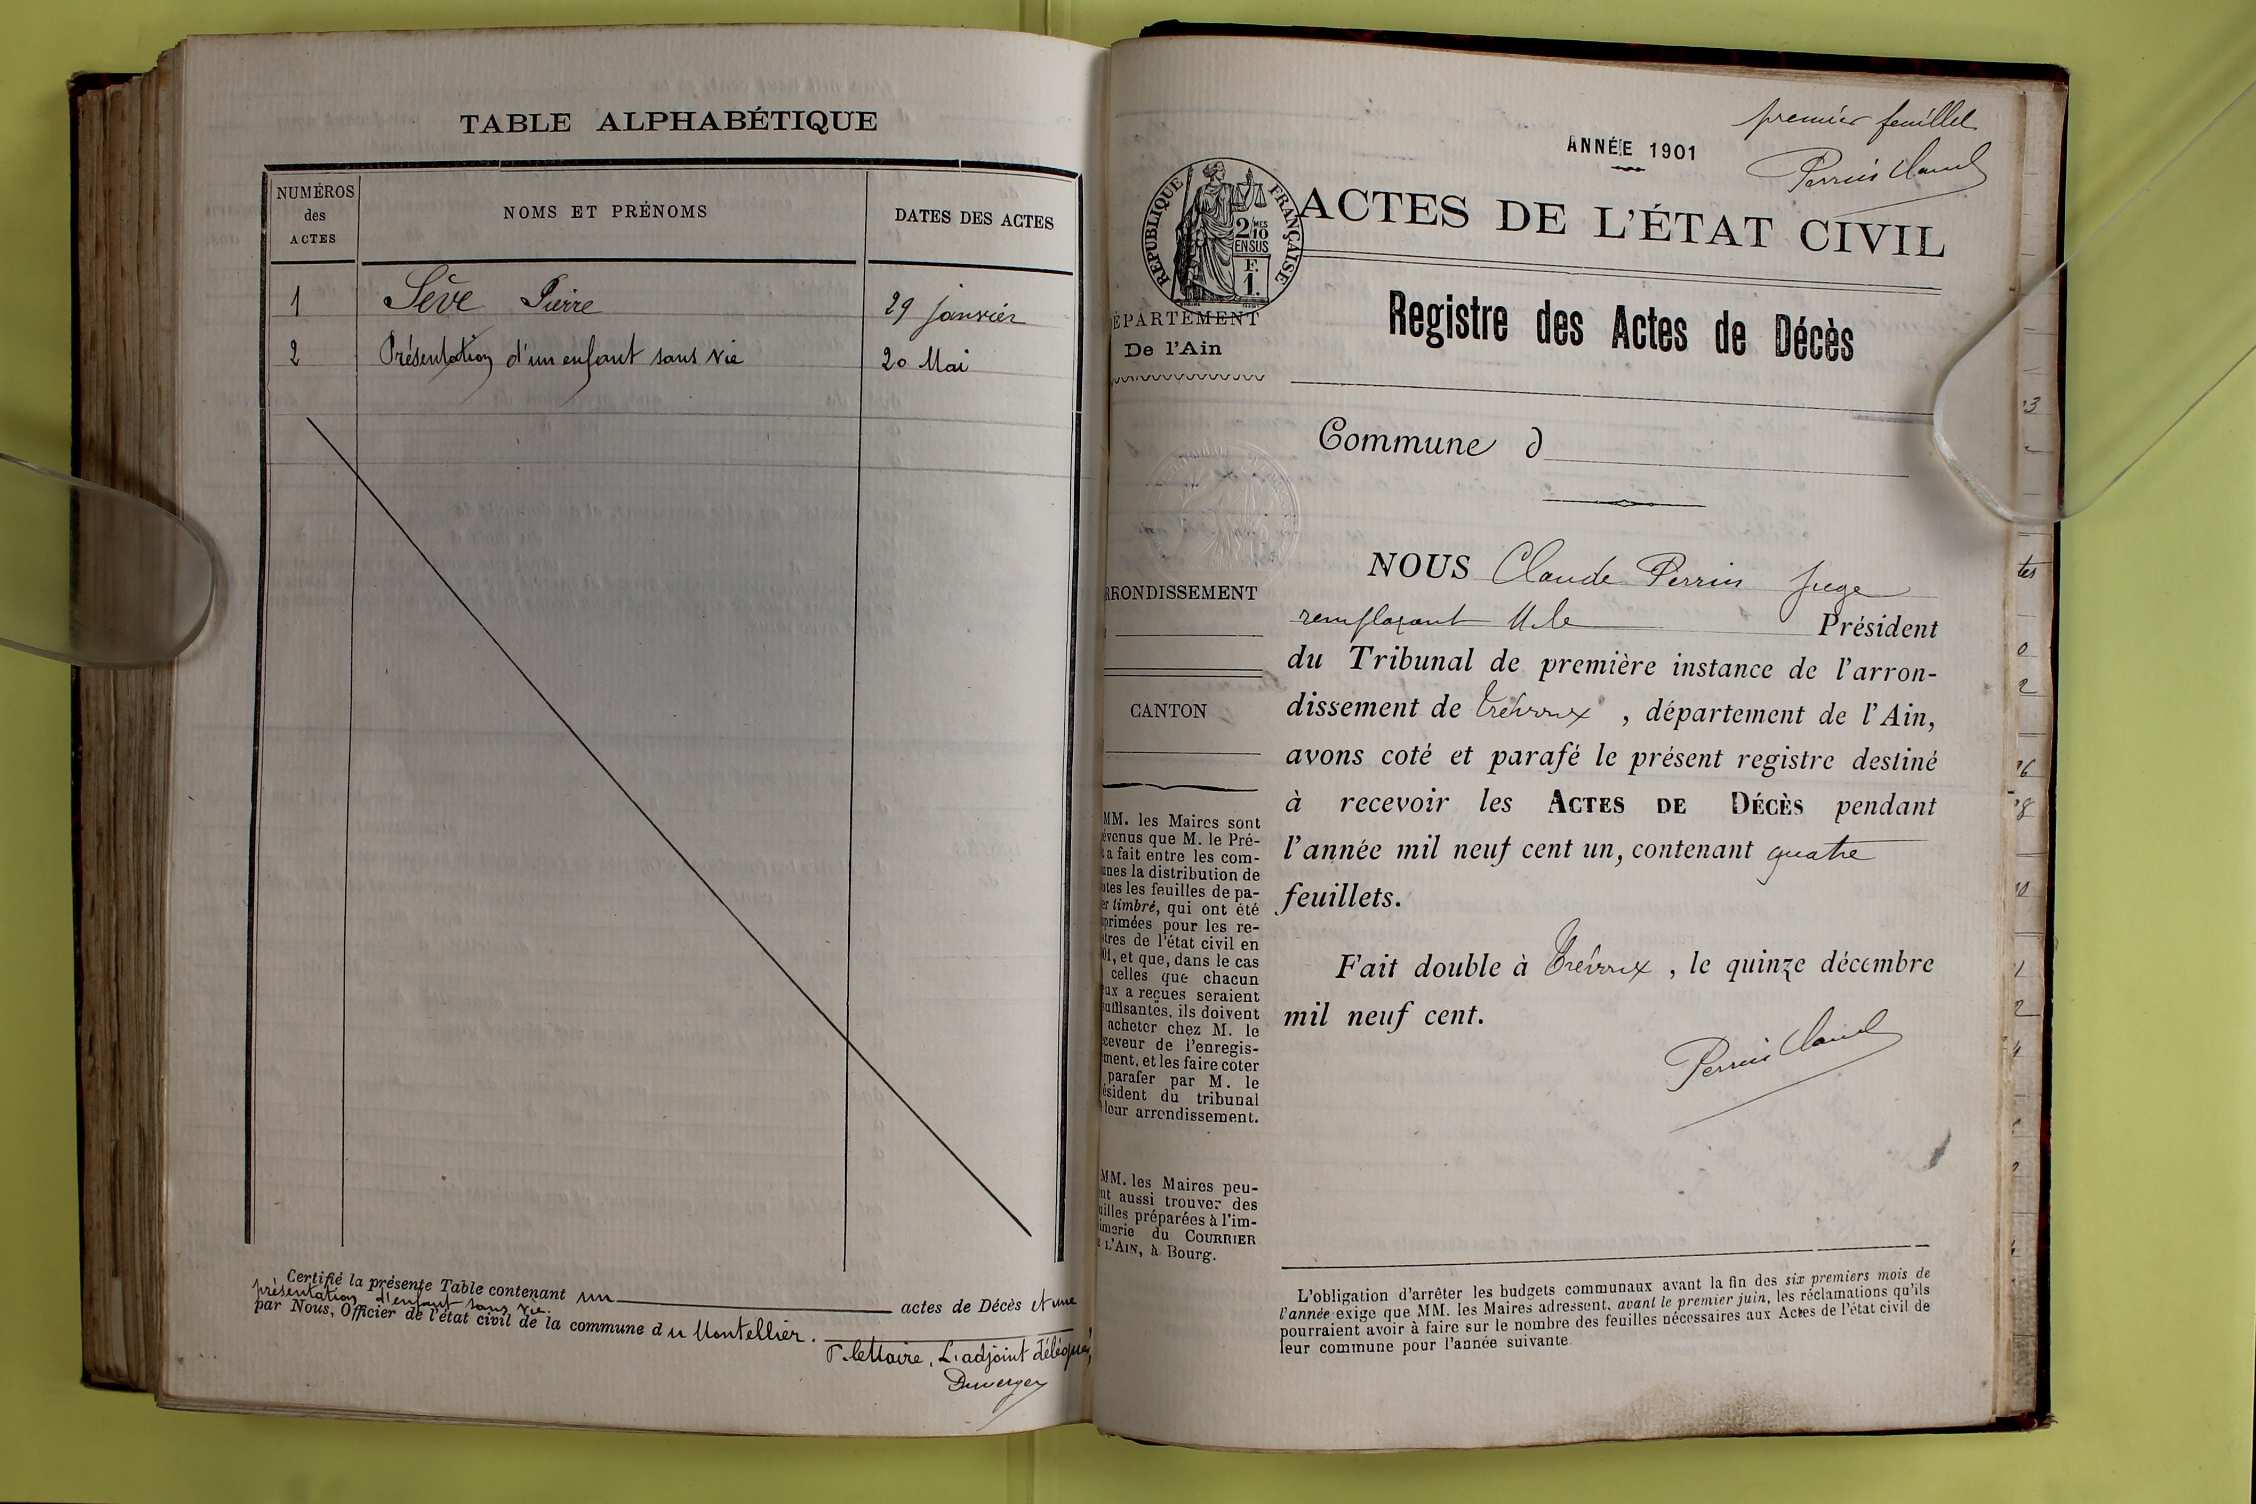 TABLE ALPHABÉTIQUE
NUMÉROS
des
ACTES
NOMS ET PRÉNOMS
DATES DES ACTES
1 Sève Pierre 29 janvier
2 Présentation d'un enfant sans vie 20 Mai
Certifié la présente Table contenant un actes de Décès et une
présentation d'enfant sans vie.
par Nous, Officier de l'état civil de la commune du Montellier.
P. le Maire, L'adjoint délégué,
Duverger
premier feuillet
Perrin Claude
ANNÉE 1901
RÉPUBLIQUE FRANÇAISE
2/10 MES
EN SUS
F.
1.
ACTES DE L'ÉTAT CIVIL
Registre des Actes de Décès
ÉPARTEMENT
De l'Ain
Commune d
RRONDISSEMENT
CANTON
NOUS Claude Perrin juge
remplaçant M. le Président
du Tribunal de première instance de l'arron-
dissement de Trévoux, département de l'Ain,
avons coté et parafé le présent registre destiné
à recevoir les ACTES DE DÉCÈS pendant
l'année mil neuf cent un, contenant quatre
feuillets.
Fait double à Trévoux, le quinze décembre
mil neuf cent.
Perrin Claude
MM. les Maires sont
évenus que M. le Pré-
t a fait entre les com-
unes la distribution de
utes les feuilles de pa-
er timbré, qui ont été
primées pour les re-
tres de l'état civil en
01, et que, dans le cas
celles que chacun
eux a reçues seraient
suffisantes, ils doivent
acheter chez M. le
ceveur de l'enregis-
ment, et les faire coter
parafer par M. le
ésident du tribunal
leur arrondissement.
MM. les Maires peu-
nt aussi trouver des
uilles préparées à l'im-
imerie du COURRIER
E L'AIN, à Bourg.
L'obligation d'arrêter les budgets communaux avant la fin des six premiers mois de
l'année exige que MM. les Maires adressent, avant le premier juin, les réclamations qu'ils
pourraient avoir à faire sur le nombre des feuilles nécessaires aux Actes de l'état civil de
leur commune pour l'année suivante